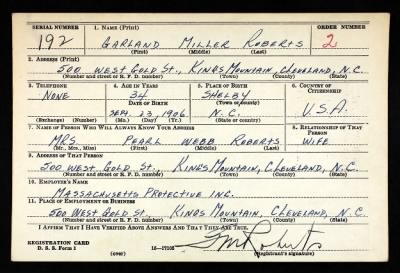 SERIAL NUMBER 1. NAME (Print) ORDER NUMBER
192 GARLAND MILLER ROBERTS 2
(First) (Middle) (Last)
2. ADDRESS (Print)
500 WEST GOLD ST., KINGS MOUNTAIN, CLEVELAND, N.C.
(Number and street or R. F. D. number) (Town) (County) (State)
3. TELEPHONE 4. AGE IN YEARS 5. PLACE OF BIRTH 6. COUNTRY OF CITIZENSHIP
NONE 34 SHELBY
DATE OF BIRTH (Town or county)
SEP. 23, 1906 N.C. U.S.A.
(Exchange) (Number) (Mo.) (Day) (Yr.) (State or country)
7. NAME OF PERSON WHO WILL ALWAYS KNOW YOUR ADDRESS 8. RELATIONSHIP OF THAT PERSON
MRS. PEARL WEBB ROBERTS WIFE
(Mr., Mrs., Miss) (First) (Middle) (Last)
9. ADDRESS OF THAT PERSON
500 WEST GOLD ST. KINGS MOUNTAIN, CLEVELAND, N.C.
(Number and street or R. F. D. number) (Town) (County) (State)
10. EMPLOYER'S NAME
MASSACHUSETTS PROTECTIVE INC.
11. PLACE OF EMPLOYMENT OR BUSINESS
500 WEST GOLD ST. KINGS MOUNTAIN, CLEVELAND, N.C.
(Number and street or R. F. D. number) (Town) (County) (State)
I AFFIRM THAT I HAVE VERIFIED ABOVE ANSWERS AND THAT THEY ARE TRUE.
REGISTRATION CARD
D. S. S. Form 1 (over) 16—17105 Roberts
(Registrant's signature)